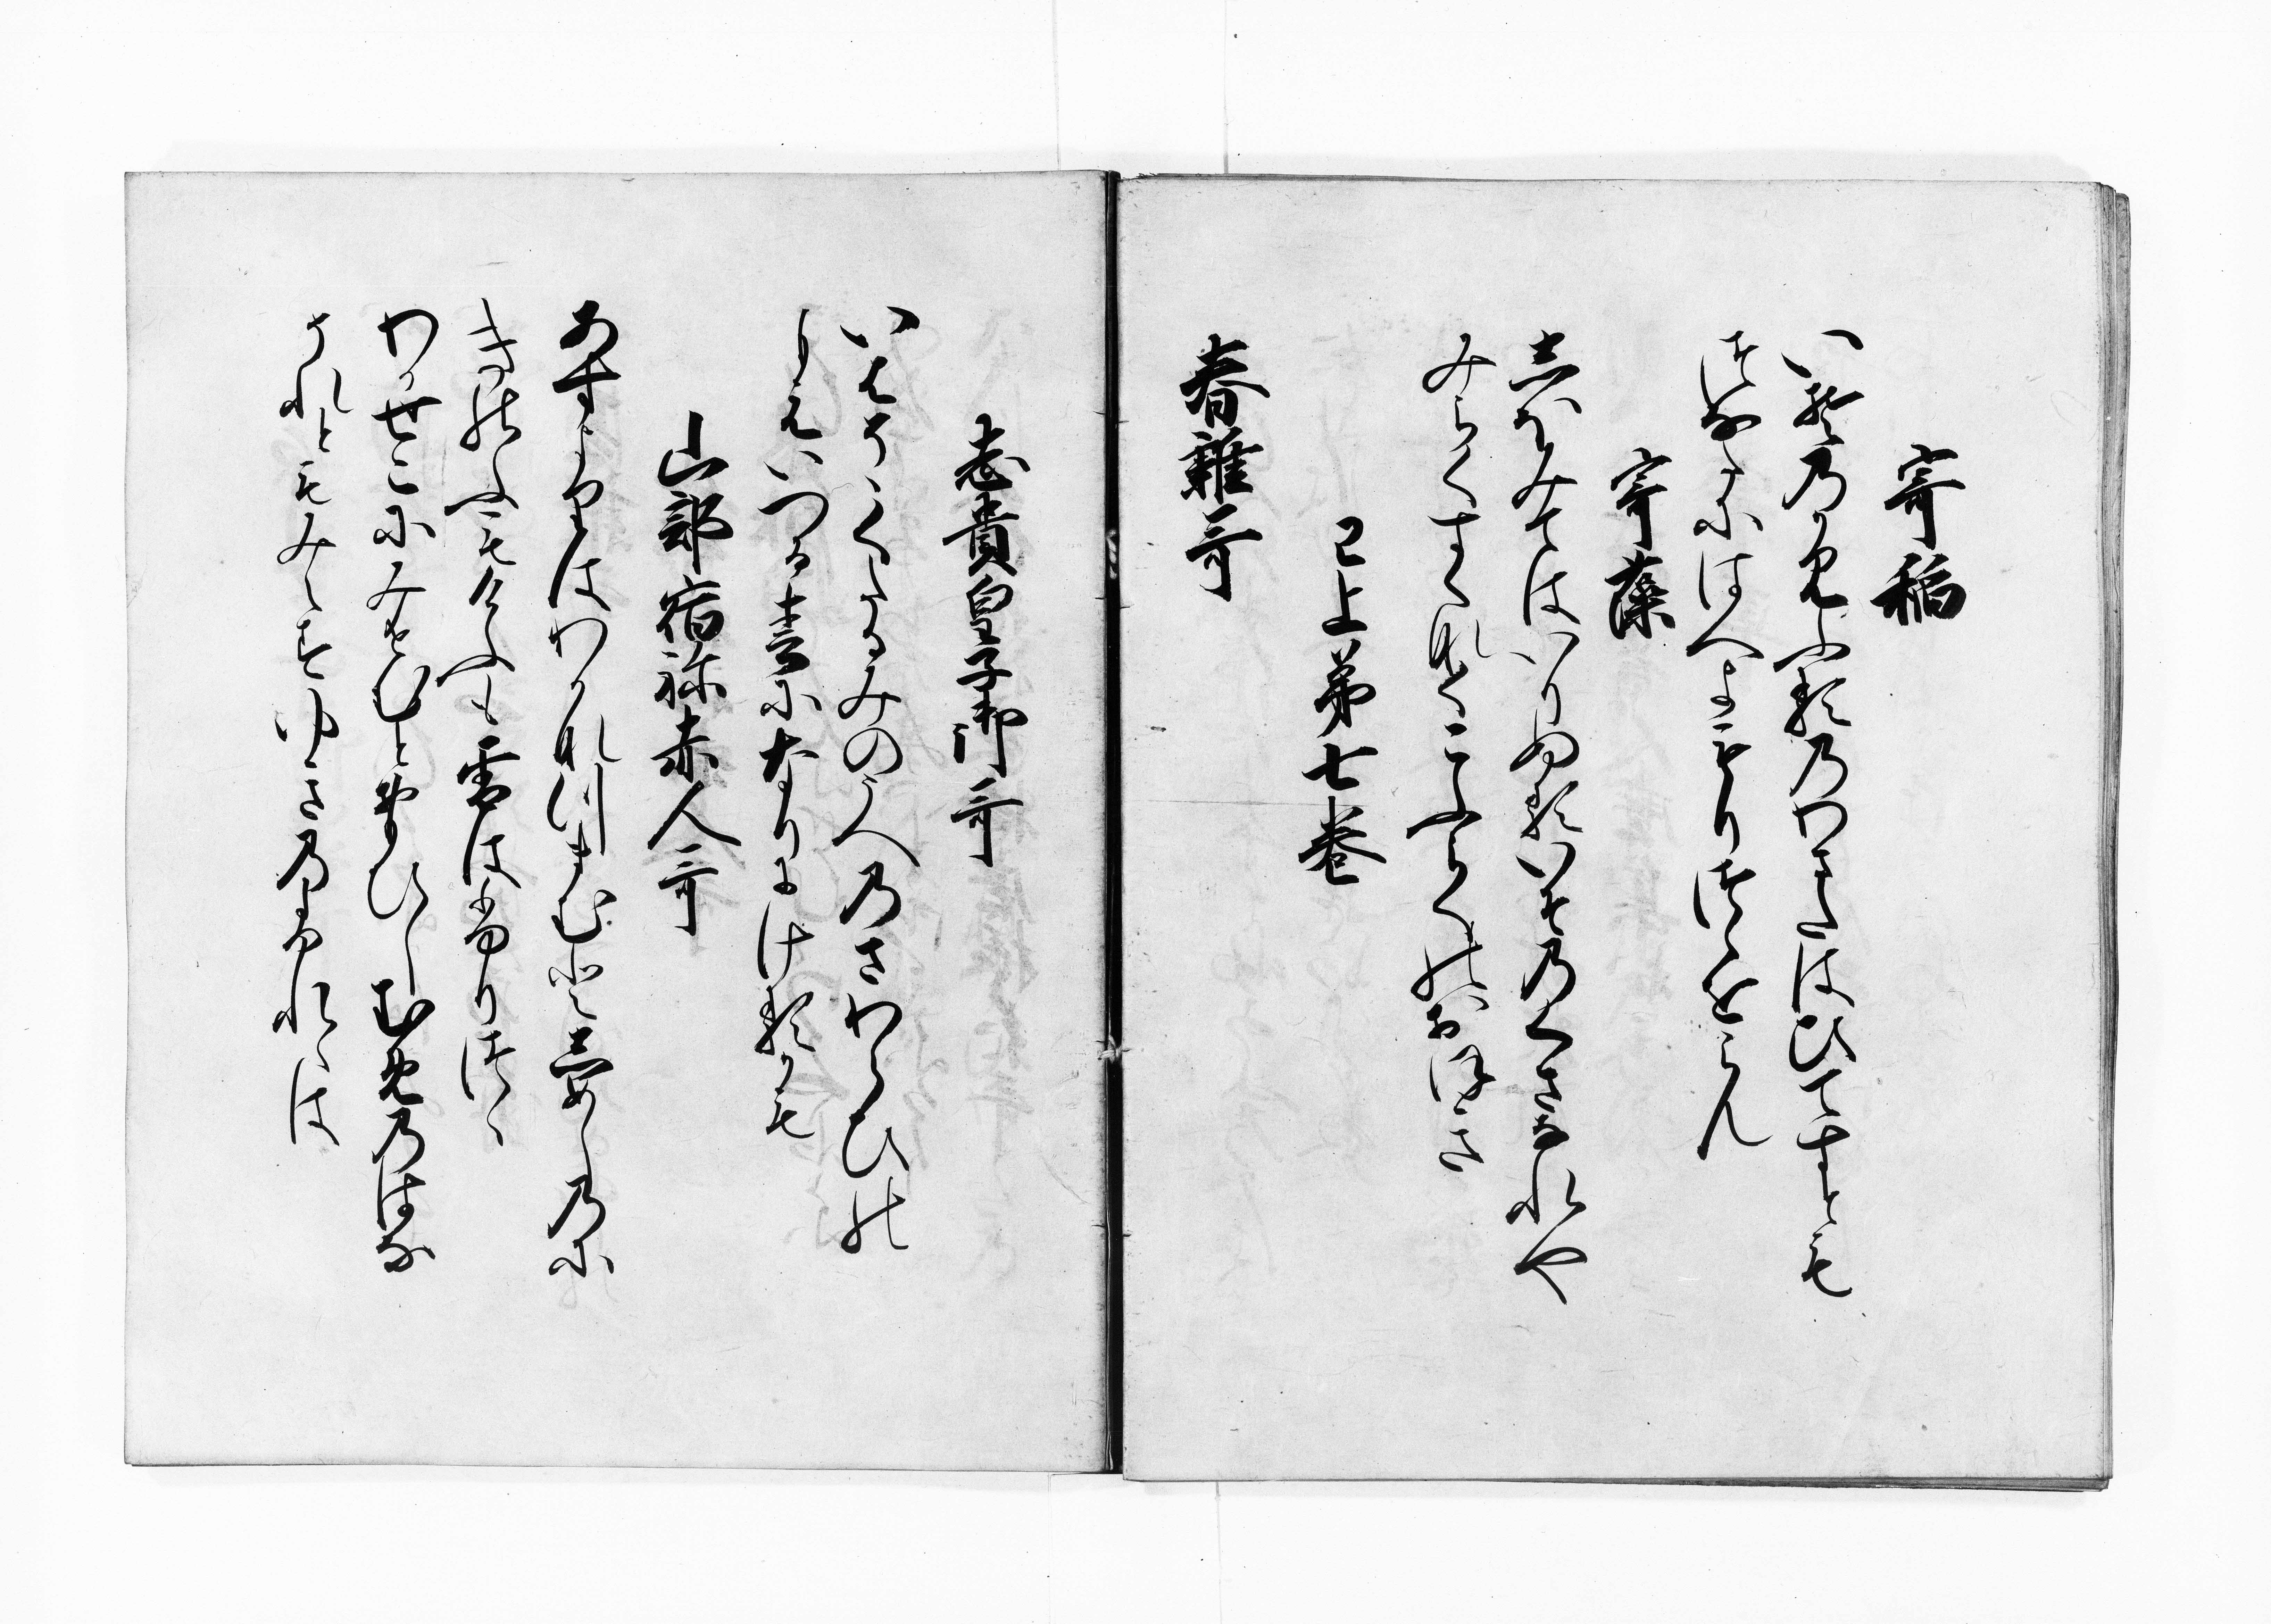 寄稲
いそのかみふるのわさたはひてすとも
つなたにはへよもりつゝをらん
寄藻
しほみてはいりぬるいそのくさなれや
みらくすくなくこふらくのおほき
已上第七巻
春雑哥
志貴皇子御哥
いはそゝくたるみのうへのさわらひの
もえいつる春になりにけるかも
山部宿祢赤人哥
あすよりはわかなつまむとしめしのに
きのふもけふも雪はふりつゝ
わかせこにみせむとおもひしむめのはな
それともみえすゆきのふれゝは